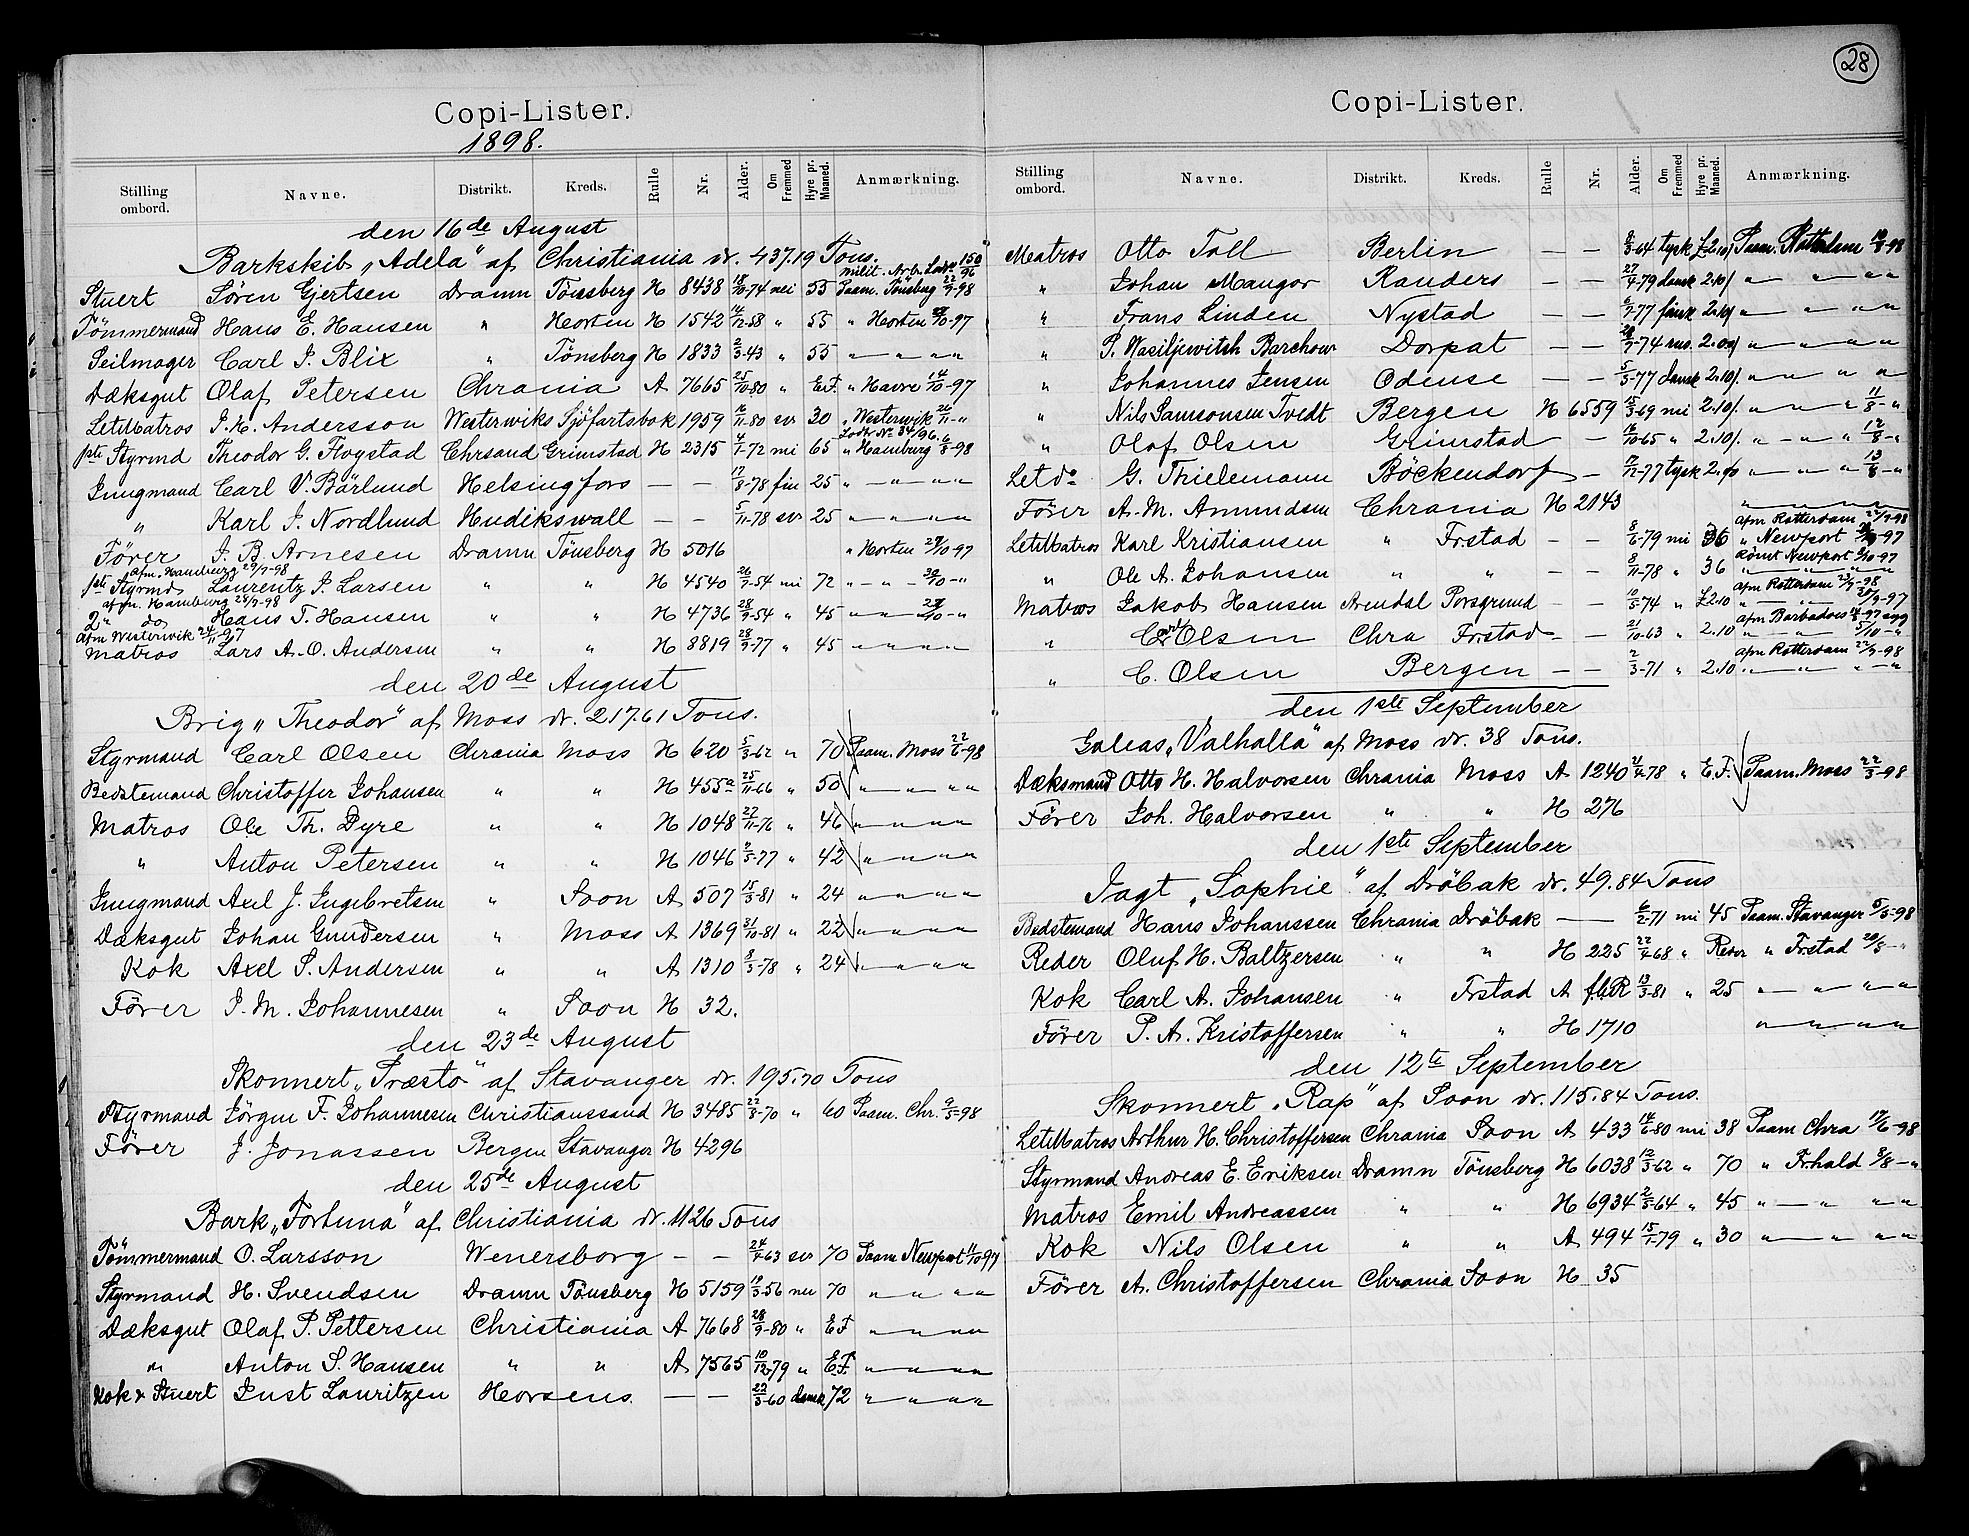 Copi-Lister.
1898.
Stilling ombord. Navne. Distrikt. Kreds. Rulle Nr. Alder. Om Fremmed Hyre pr. Maaned. Anmærkning.
den 16de August
Barkskib „Adela" af Christiania dr. 437.19 Tons.
milit. Arb. 150/96
Stuert Sören Gjertsen Dramn Tönsberg H 8438 18/10-74 nei 55 Paam. Tönsberg 22/9-98
Tömmermand Hans E. Hansen " Horten H 1542 14/12-58 " 55 " Horten 28/10-97
Seilmager Carl J. Blix " Tönsberg H 1833 2/3-43 " 55 " — " " "
Dæksgut Olaf Petersen Chrania A 7665 25/10-80 " E.F. " Havre 14/10-97
LetMatros J. K. Andersson Westerwiks Sjöfartsbok 1959 16/11-80 sv 30 " Westerwik 26/11-"
Lodr No 34/96.
1ste Styrmd Theodor G. Flöystad Chrsand Grimstad H 2315 4/1-72 nei 65 " Hamburg 6/8-98
Jungmand Carl V. Bärlund Helsingfors — — 17/8-78 fin 25 " — " " "
" Karl J. Nordlund Hudikswall — — 5/11-78 sv 25 " — " " "
Förer J. B. Arnesen Dramn Tönsberg H 5016 " Horten 29/10-97
afm. Hamburg 29/7-98
1ste Styrmd Laurentz J. Larsen " " H 4540 26/7-54 nei 72 " — " — 30/10-"
afm. Hamburg 28/7-98
2" do Hans T. Hansen " " H 4736 28/9-54 " 45 " — " — 29/10-"
afm Westerwik 24/11-97
Matros Lars A. O. Andersen " " H 8819 28/9-77 " 45 " — " " "
den 20de August
Brig „Theodor" af Moss dr. 217.61 Tons.
Styrmand Carl Olsen Chrania Moss H 620 5/3-62 " 70 Paam. Moss 22/6-98
Bedstemand Christoffer Johansen " " H 455a 25/11-66 " 50 " — " " "
Matros Ole Th. Dyre " " H 1048 27/11-76 " 46 " — " " "
" Anton Petersen " " H 1046 9/5-77 " 42 " — " " "
Jungmand Axel J. Ingebretsen " Soon A 507 15/3-81 " 24 " — " " "
Dæksgut Johan Gundersen " Moss A 1369 31/10-81 " 22 " — " " "
Kok Axel S. Andersen " " A 1310 8/3-78 " 24 " — " " "
Förer J. M. Johannesen " Soon H 32.
den 23de August
Skonnert „Præstö" af Stavanger dr. 195.70 Tons
Styrmand Jörgen F. Johannesen Christianssand H 3485 22/3-70 " 60 Paam. Chr. 9/5-98
Förer J. Jonassen Bergen Stavanger H 4296
den 25de August
Bark „Fortuna" af Christiania dr. 1126 Tons
Tömmermand O. Larsson Wenersborg — — 24/4-63 sv 70 Paam Newport 11/10-97
Styrmand H. Svendsen Dramn Tönsberg H 5159 19/3-56 nei 70 " — " " "
Dæksgut Olaf P. Pettersen Christiania A 7668 28/9-80 " E F " — " " "
" Anton S. Hansen " " A 7565 10/12-79 " E.F. " — " " "
Kok & Stuert Just Lauritzen Horsens. — — 22/3-60 dansk 72 " — " " "
28
Copi-Lister.
Stilling ombord. Navne. Distrikt. Kreds. Rulle Nr. Alder. Om Fremmed Hyre pr. Maaned. Anmærkning.
Matros Otto Toll Berlin — — 8/3-64 tysk £2.10/ Paam. Rotterdam 10/8-98
" Johan Mangor Randers — — 27/4-79 dansk 2.10/ " — " " "
" Frans Linden Nystad — — 6/7-77 finsk 2.10/ " — " " "
" P. Wasiljewitsh Barchow Dorpat — — 28/7-74 rus. 2.00/ " — " " "
" Johannes Jensen Odense — — 5/3-77 dansk 2.10/. " — " " "
" Nils Samsonsen Tvedt Bergen H 6559 15/3-69 nei 2.10/. " — " " 11/8-"
" Olaf Olsen Grimstad — — 16/10-65 " 2.10/. " — " " 12/8-"
Let do G. Thielemann Böckendorf — 17/11-77 tysk 2.10 " — " " 13/8-"
Förer A. M. Amundsen Chrania H 2143 " — " — " "
afm Rotterdam 22/7-98
LetMatros Karl Kristiansen " Frstad — — 8/6-79 nei 36 " Newport -97
Römt Newport 9/10-97
" Ole A. Johansen " " — — 8/11-78 " 36 " — " " "
afm Rotterdam 23/7-98
Matros Jakob Hansen Arendal Porsgrund — — 10/5-74 " £2.10 " — " — 30/9-97
afm Barbadoes 14/4-97 syg
" Carl Olsen Chra Frstad — — 21/10-63 " 2.10 " — " — 5/10-"
afm Rotterdam 22/7-98
" C. Olsen Bergen — — 2/3-71 " 2.10 " — " — " — "
den 1ste September
Galeas „Valhalla" af Moss dr. 38 Tons.
Dæksmand Otto H. Halvorsen Chrania Moss A 1240 21/4-78 " E.F. Paam. Moss 22/3-98
Förer Joh. Halvorsen " " H 276
den 1ste September
Jagt „Sophie" af Dröbak dr. 49.84 Tons
Bedstemand Hans Johanssen Chrania Dröbak — — 6/2-71 nei 45 Paam. Stavanger 5/5-98
Reder Oluf H. Baltzersen " " H 225 22/4-68 " Reder " Frstad 20/5-"
Kok Carl A. Johansen " Frstad A f.h.R 13/3-81 " 25 " — " " "
Förer P. A. Kristoffersen " " H 1710 " — " " "
den 12te September
Skonnert „Rap" af Soon dr. 115.84 Tons.
LetMatros Arthur H. Christoffersen Chrania Soon A 433 14/6-80 nei 38 Paam Chra 17/6-98
Styrmand Andreas E. Eriksen Dramn Tönsberg H 6038 12/3-62 " 70 " Fr.hald 8/8-"
Matros Emil Andreassen " " H 6934 2/3-64 " 45 " — " " "
Kok Nils Olsen " " A 494 15/1-79 " 30 " — " " "
Förer A. Christoffersen Chrania Soon H 35